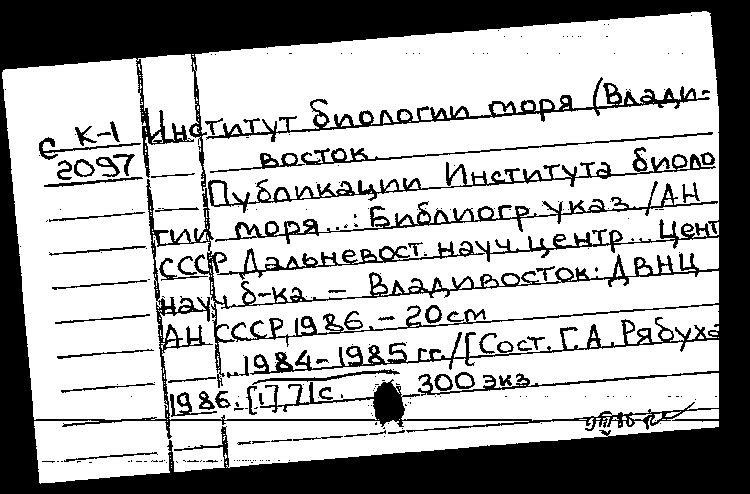 с К-1
2097
Институт биологии моря (Влади-
восток.
Публикации Института биоло
гии моря...: Библиогр. указ. /АН
СССР. Дальневост. науч. центр... Цент
науч. б-ка. – Владивосток: ДВНЦ
АН СССР, 1986. – 20 см
...1984-1985 гг./[Сост. Г.А. Рябуха
1986. [1], 71 с. 300 экз.